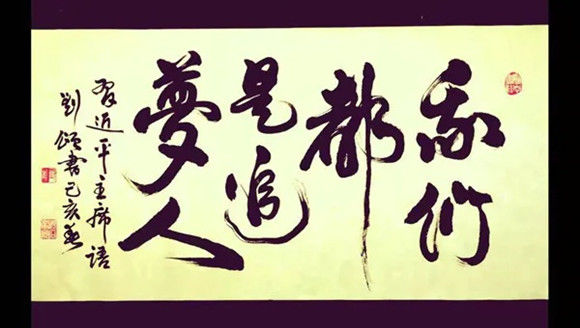 我们
都
是追
夢人
習近平主席語
劉頌書己亥春